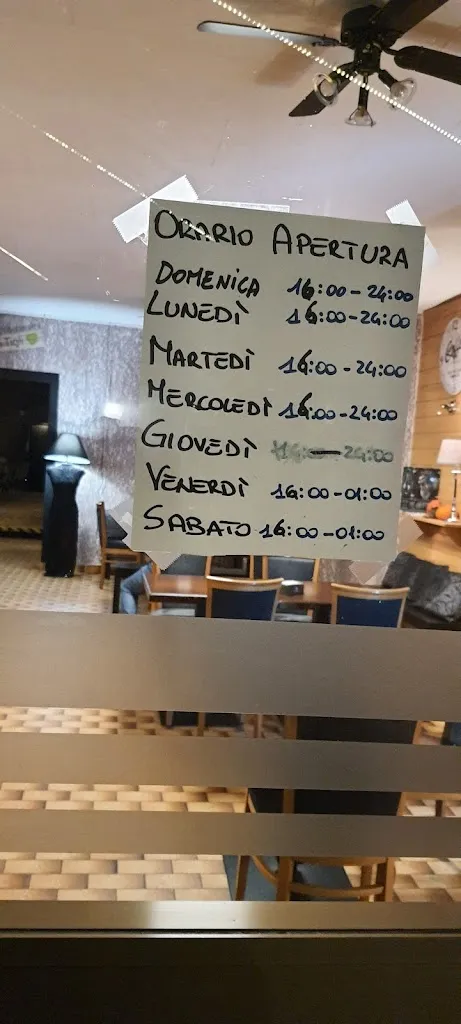 ORARIO APERTURA
DOMENICA 16:00-24:00
LUNEDÌ 16:00-24:00
MARTEDÌ 16:00-24:00
MERCOLEDÌ 16:00-24:00
GIOVEDÌ 16:00-24:00
VENERDÌ 16:00-01:00
SABATO 16:00-01:00